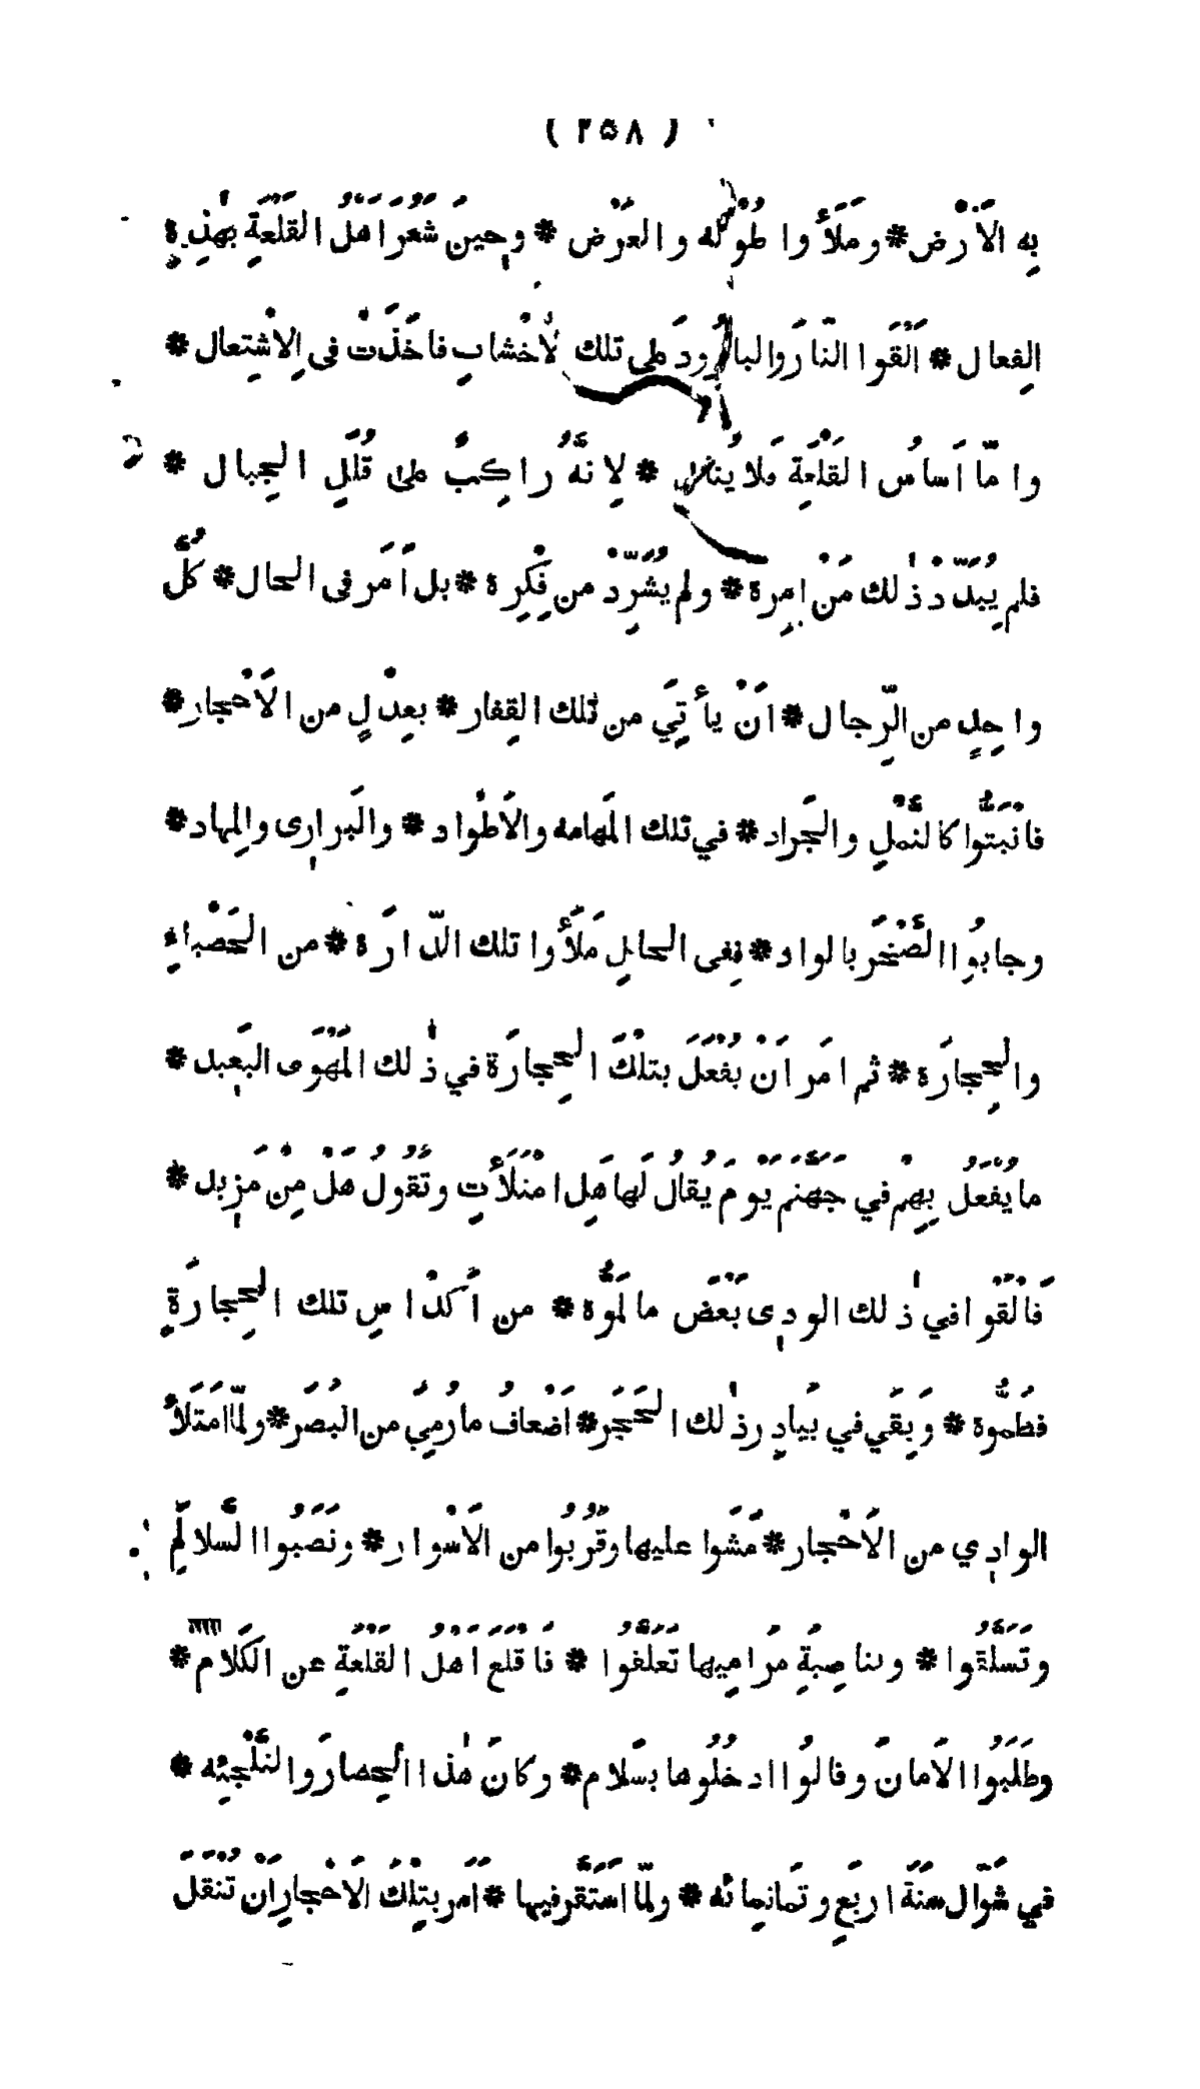 ( ٢٥٨ )
بِه الاَرْض * ومَلَأُوا طُوْلَه والعَرْض * وحِينَ شَعُرَ اَهْلُ القَلْعَةِ بهٰذِهِ
الفِعال * اَلْقَوا النّارَ والبارُودَ على تلك الاَخْشابِ فاخَذَتْ في الاِشْتِعال *
وامّا اَساسُ القَلْعَةِ فلا يُنال * لِانَّهُ راكِبٌ على قُلَلِ الجِبال *
فلم يُبَدِّدْ ذٰلك مَنْ اَمِرِه * ولم يُشَرِّدْ من فِكْرِه * بل اَمَر في الحال * كُلَّ
واحِدٍ من الرِّجال * اَنْ يأتِيَ من تلك القِفار * بعِدْلٍ من الاَحْجار *
فانْبَثُّوا كالنَّمْلِ والجَراد * في تلك المَهامه والاَطْواد * والبَرارِى والمِهاد *
وجابُوا الصَّخْرَ بالواد * فِفى الحالِ مَلَأُوا تلك الدّارَة * من الحَصْباءِ
والحِجارَة * ثم امَر اَنْ يُفْعَلَ بتلْكَ الحِجارَة في ذٰلك المَهْوَى البَعِيد *
ما يُفْعَلُ بِهِمْ في جَهَنَّمَ يَوْمَ يُقالُ لَها هَلِ امْتَلَأْتِ وتَقُولُ هَلْ مِنْ مَزِيد *
فَالْقَوْا في ذٰلك الوادِى بَعْضَ ما لَمُّوه * من اَكْداسِ تلك الحِجارَةِ
فطَمُّوه * وَبَقِي في بَيادِرِ ذٰلك الحَجَر * اَضْعافُ ما رُمِيَ من البُصَر * ولمّا امَتَلَأَ
الوادِي من الاَحْجار * مَشَوا عليها وقَرُبُوا من الاَسْوار * ونَصَبُوا السَّلالِم
وتَسَلَّقُوا * وبناصِيَةِ مَرامِيها تَعَلَّقُوا * فَاقْلَعَ اَهْلُ القَلْعَةِ عن الكَلام *
وطَلَبُوا الاَمانَ وقالُوا ادخُلُوها بسَلام * وكانَ هٰذا الحِصارَ والتَّلْجِئه *
في شَوّال سَنَةَ اربَعِ وثَمانِمائه * ولمّا اسْتَقَرَّ فيها * اَمَر بتِلْكَ الاَحْجارِ اَنْ تُنْقَلَ